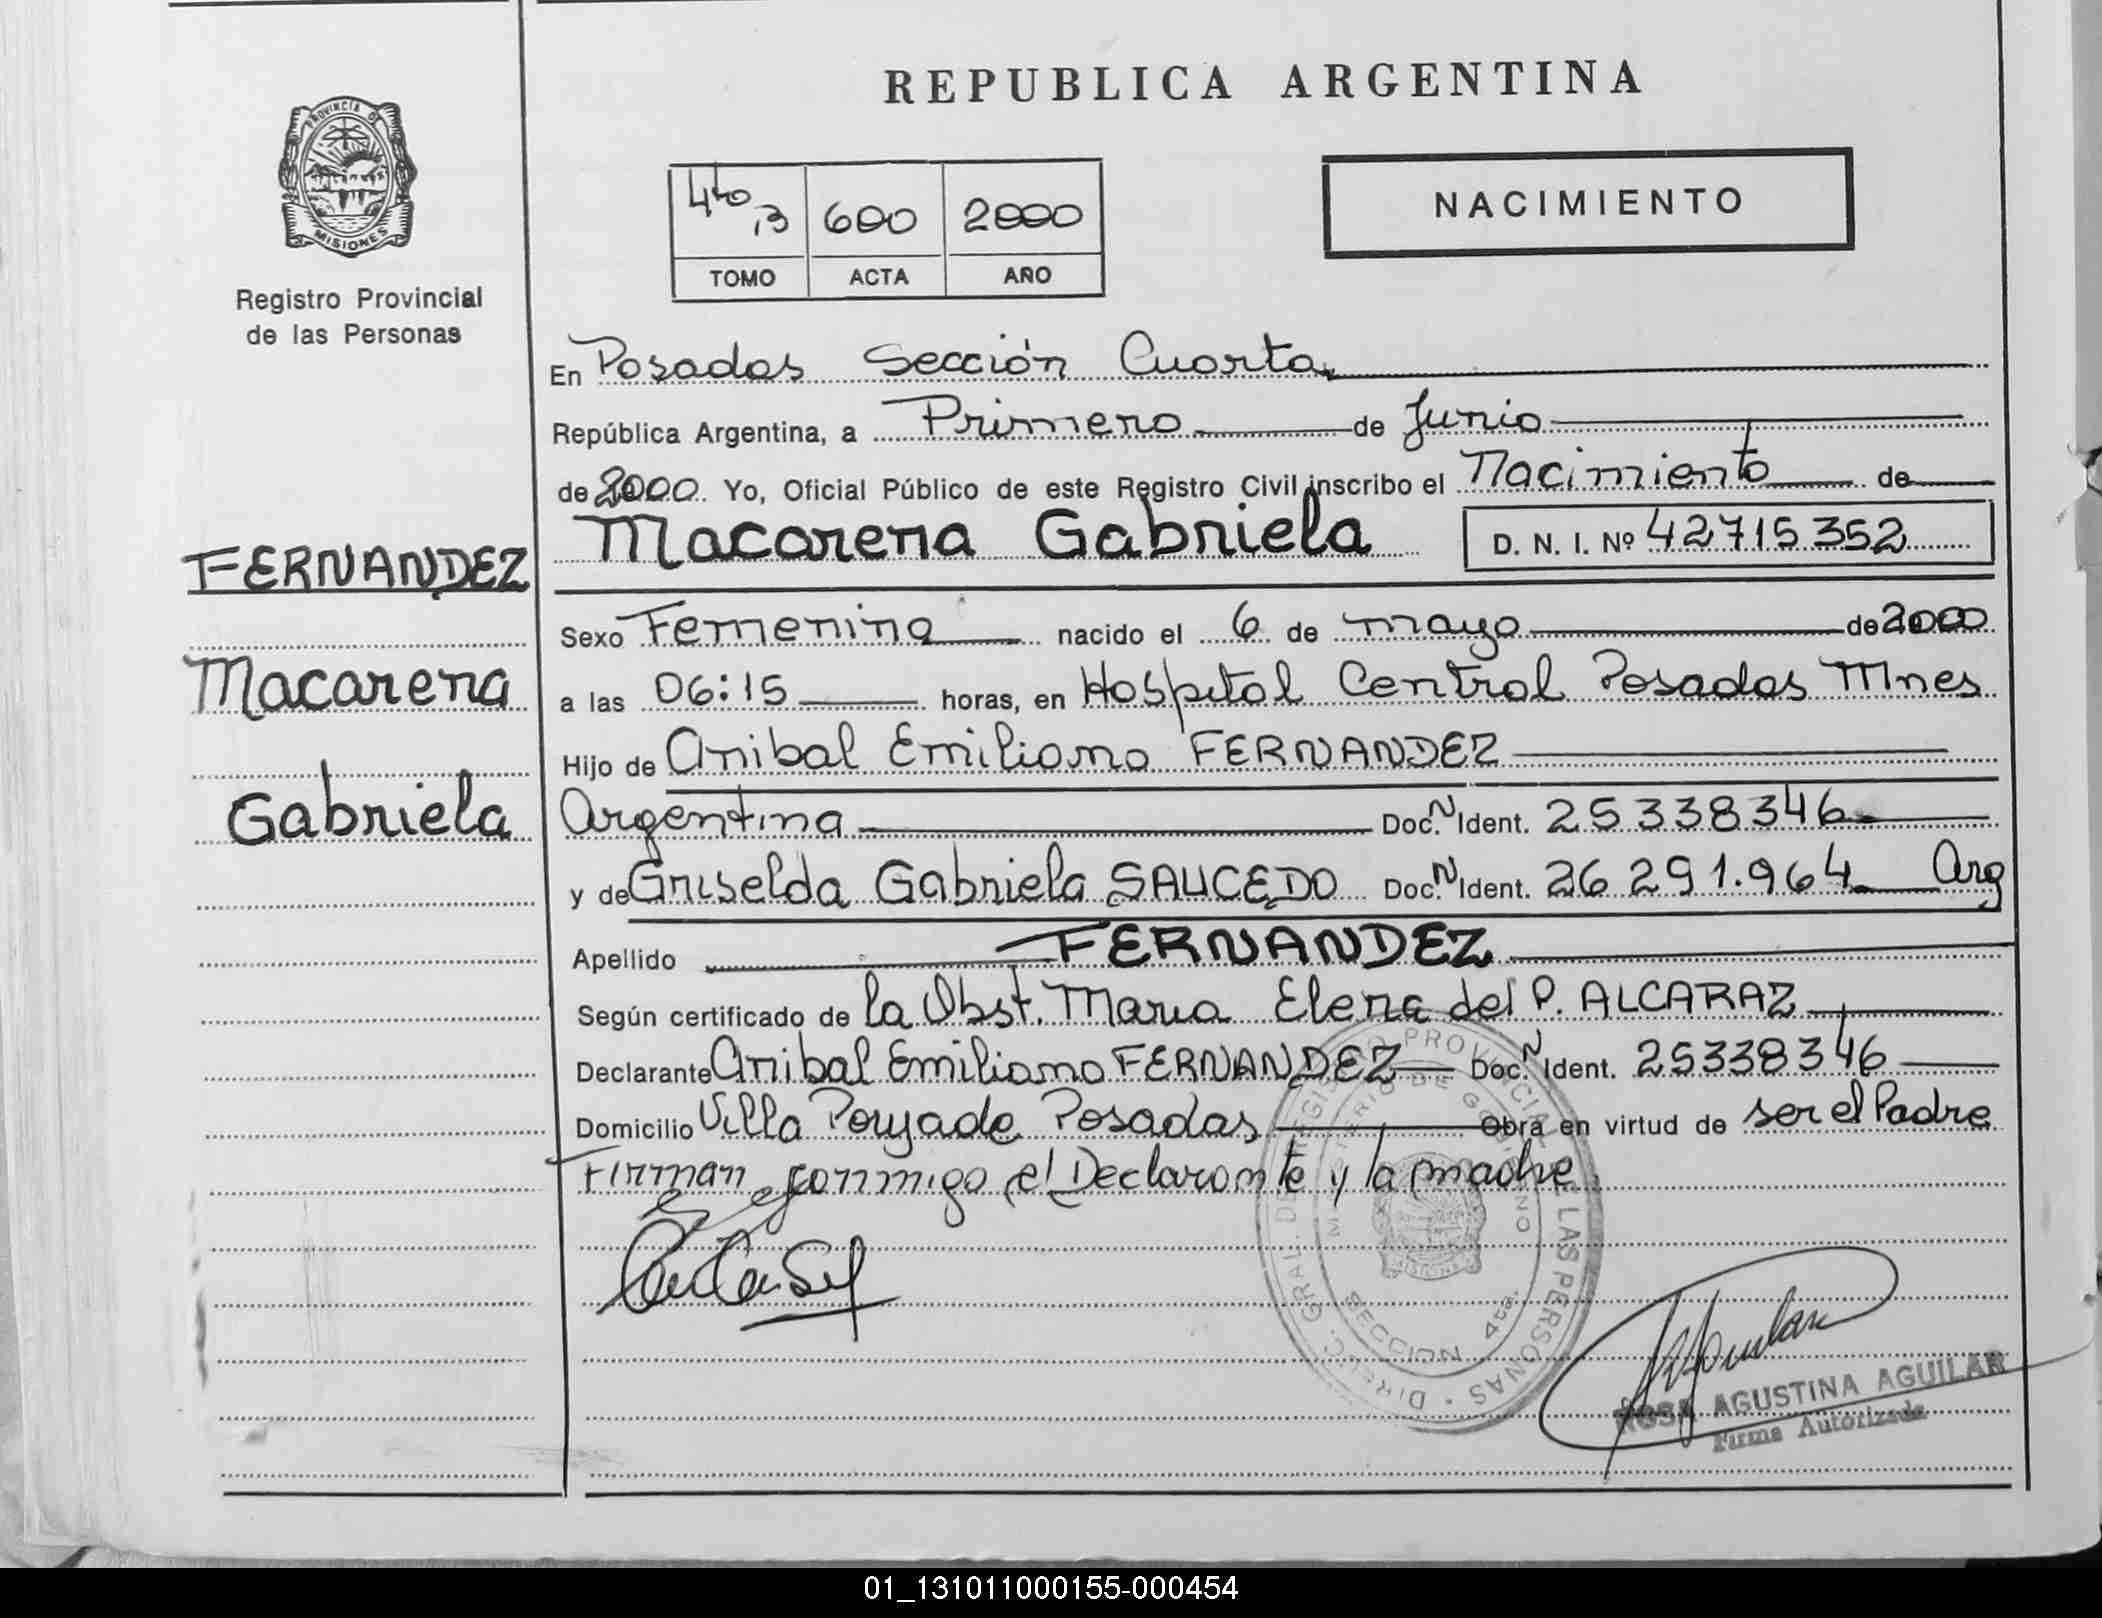 REPUBLICA ARGENTINA
PROVINCIA DE
MISIONES
Registro Provincial
de las Personas
4to 13 600 2000
TOMO ACTA AÑO
NACIMIENTO
En Posadas Sección Cuarta
República Argentina, a Primero de Junio
de 2000 Yo, Oficial Público de este Registro Civil inscribo el Nacimiento de
Macarena Gabriela D. N. I. Nº 42715352
FERNANDEZ
Macarena
Gabriela
Sexo Femenino nacido el 6 de mayo de 2000
a las 06:15 horas, en Hospital Central Posadas Mnes
Hijo de Anibal Emiliano FERNANDEZ
Argentina Doc. N Ident. 25338346
y de Griselda Gabriela SAUCEDO Doc. N Ident. 26 291.964 Arg
Apellido FERNANDEZ
Según certificado de la Obst. Maria Elena del P. ALCARAZ
Declarante Anibal Emiliano FERNANDEZ Doc. N Ident. 25338346
Domicilio Villa Poujade Posadas Obra en virtud de ser el Padre
Firman conmigo el Declarante y la madre
DIRECC. GRAL. DE REGISTRO PROVINCIAL DE LAS PERSONAS
MINISTERIO DE GOBIERNO
MISIONES
SECCION 4ta.
ROSA AGUSTINA AGUILAR
Firma Autorizada
01_131011000155-000454